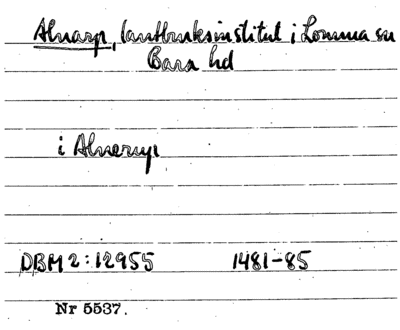 Alnarp, lantbruksinstitut i Lomma sn
Bara hd
i Alnerup
DBM 2:12955 1481-85
Nr 5537.